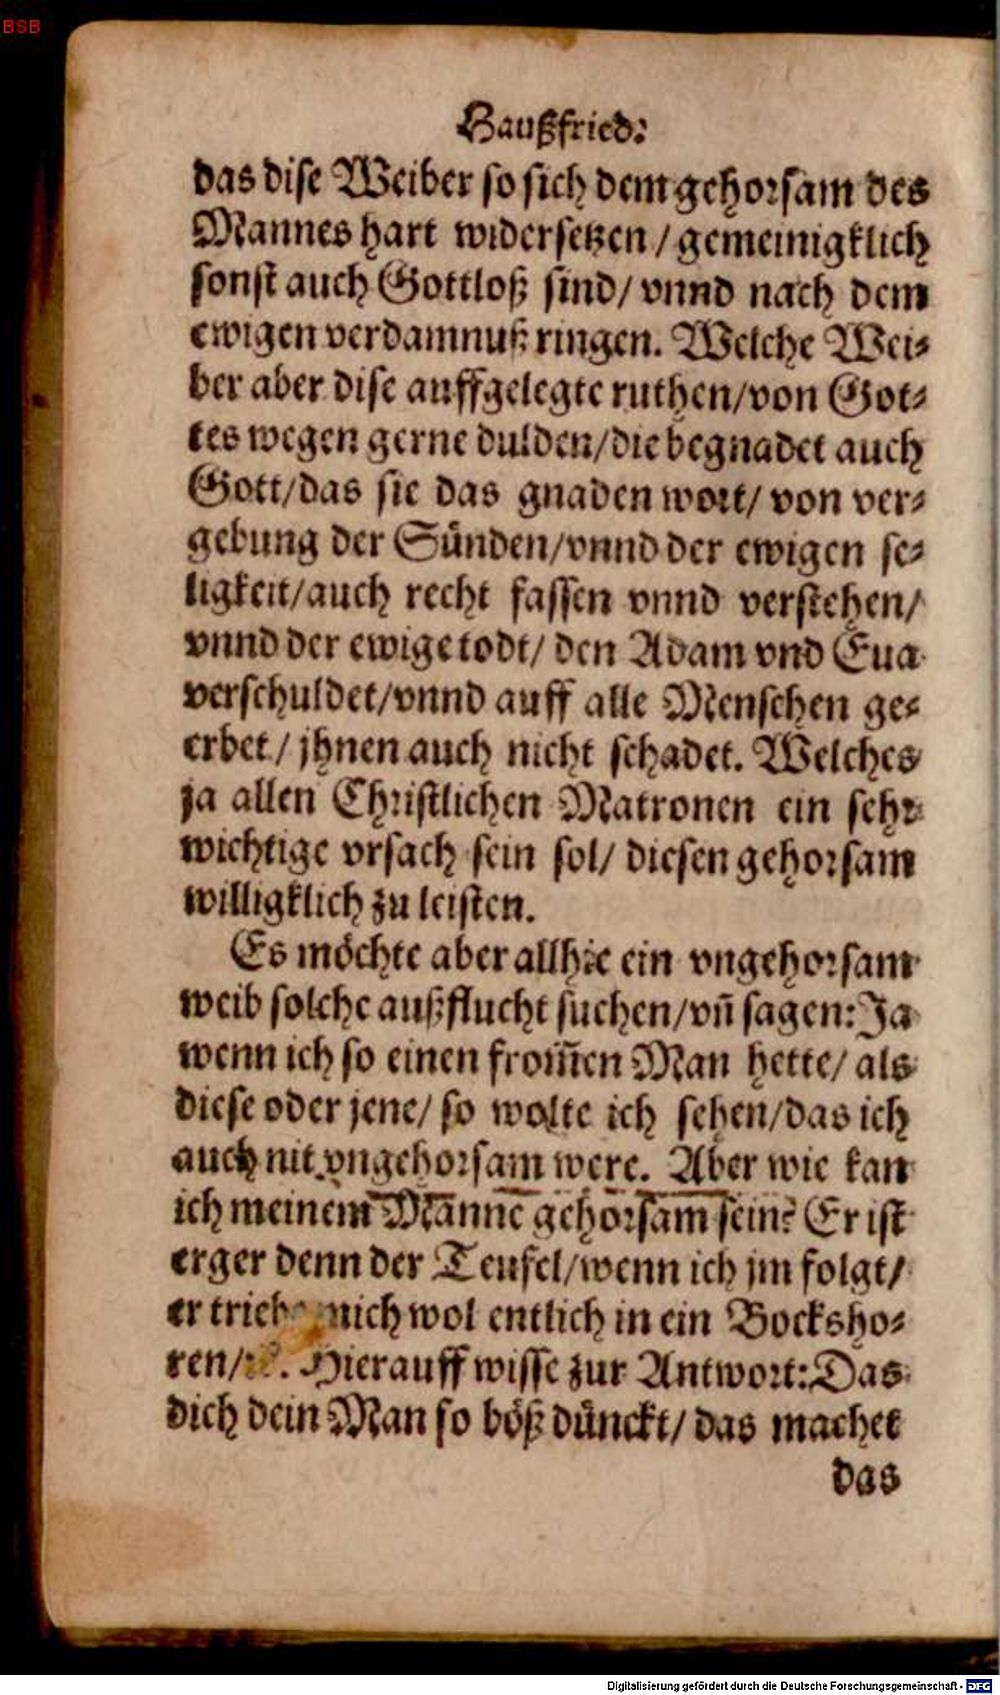 BSB
Haußfried:
das dise Weiber so sich dem gehorsam des
Mannes hart widersetzen / gemeinigklich
sonst auch Gottloß sind / vnnd nach dem
ewigen verdamnuß ringen. Welche Wei-
ber aber dise auffgelegte ruthen / von Got-
tes wegen gerne dulden / die begnadet auch
Gott / das sie das gnaden wort / von ver-
gebung der Sünden / vnnd der ewigen se-
ligkeit / auch recht fassen vnnd verstehen /
vnnd der ewige todt / den Adam vnd Eua
verschuldet / vnnd auff alle Menschen ge-
erbet / jhnen auch nicht schadet. Welches
ja allen Christlichen Matronen ein sehr
wichtige vrsach sein sol / diesen gehorsam
willigklich zu leisten.
Es möchte aber allhie ein vngehorsam
weib solche außflucht suchen / vñ sagen: Ja
wenn ich so einen from̃en Man hette / als
diese oder jene / so wolte ich sehen / das ich
auch nit vngehorsam were. Aber wie kan
ich meinem Manne gehorsam sein? Er ist
erger denn der Teufel / wenn ich jm folgt /
er triebe mich wol entlich in ein Bocksho-
ren / Hierauff wisse zur Antwort: Das
dich dein Man so böß dünckt / das machet
das
Digitalisierung gefördert durch die Deutsche Forschungsgemeinschaft - DFG